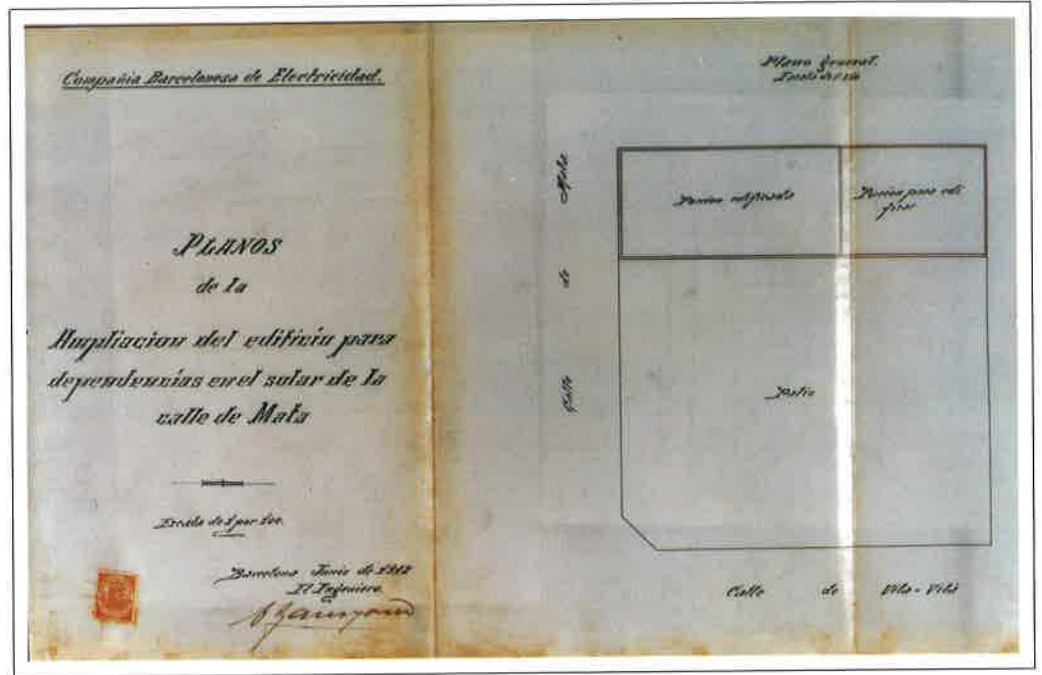 Compañia Barcelonesa de Electricidad.
PLANOS
de la
Ampliacion del edificio para
dependencias en el solar de la
calle de Mata
Escala de 1 por 100.
Barcelona Junio de 1912
El Ingeniero
Plano General.
Escala de 1
Calle de Mata
Porcion edificada
Porcion para edi
ficar
Patio
Calle de Vila-Vilá